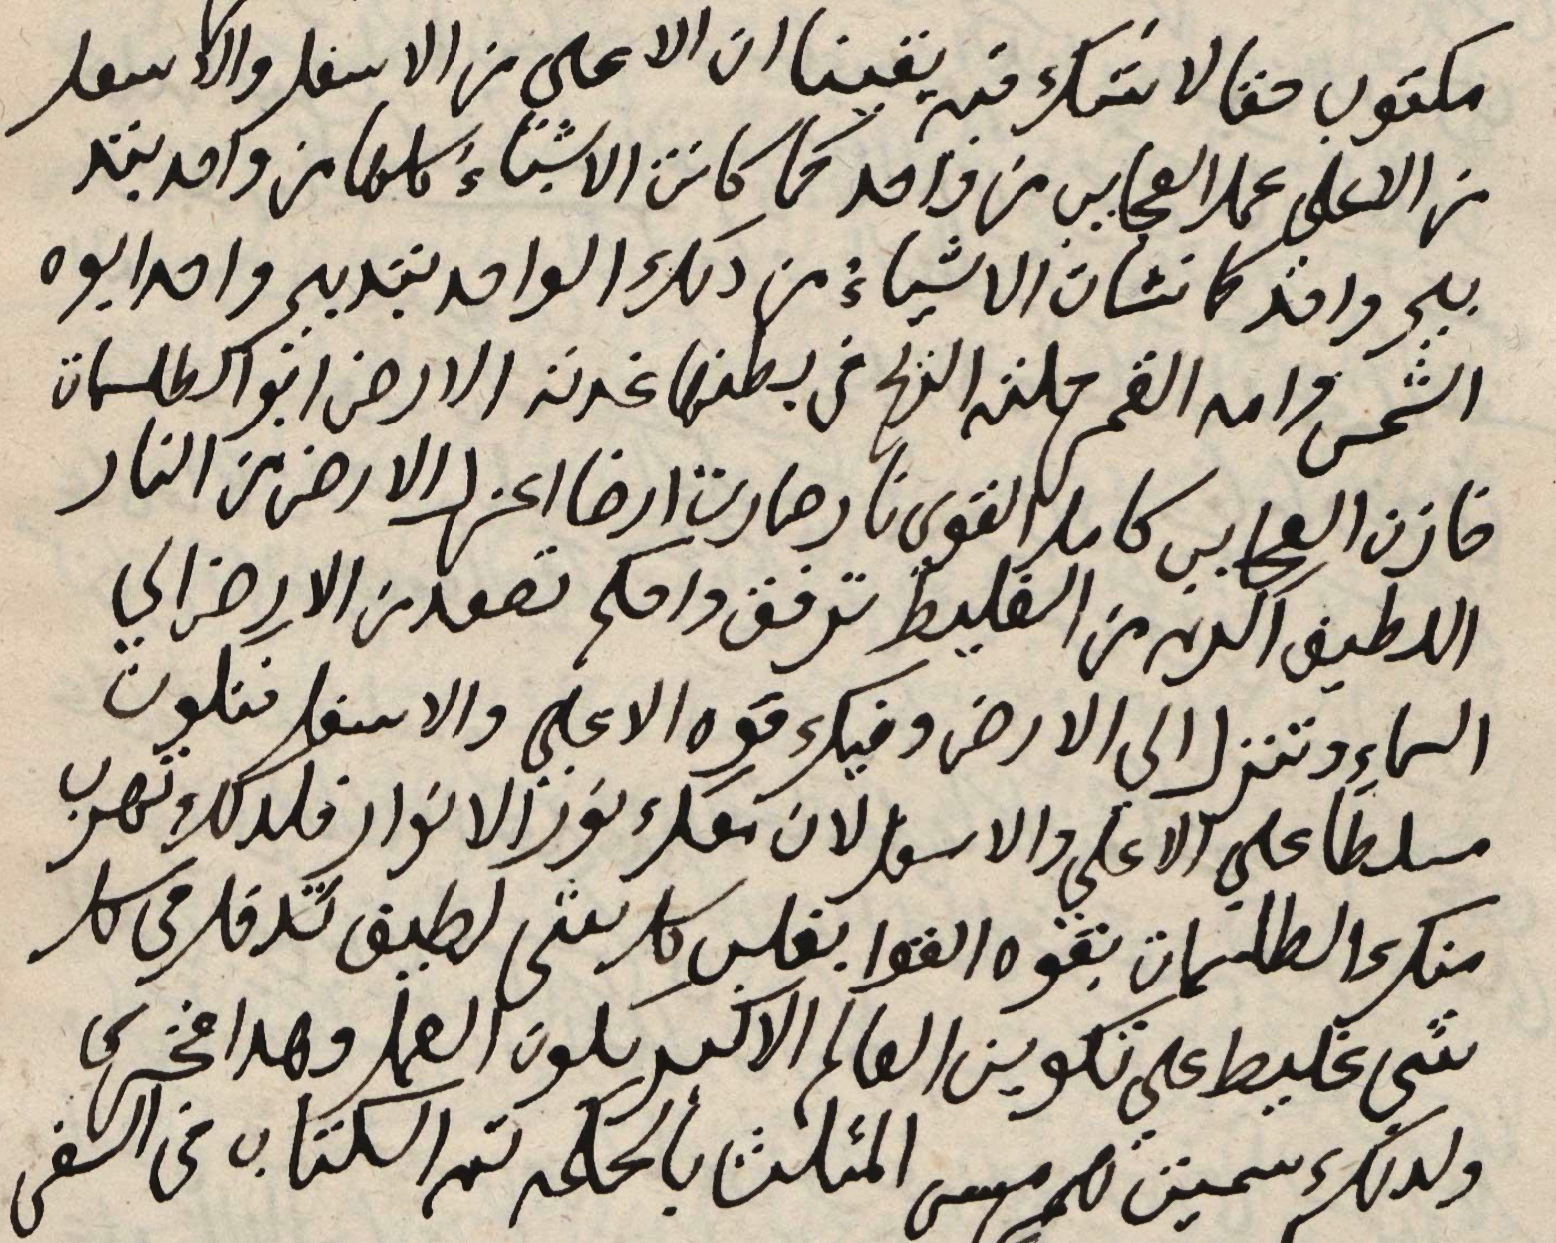 مكتوب حقا لا شك فيه يقينا ان الا على من الا سفل والا سفل
من الاعلى عمل العجايب من واحد كما كانت الاشياء كلها من واحد بتد
بير واحد كما نشات الاشياء من دلك الواحد بتدبير واحد ابوه
الشمس وامه القمر حملته الريح في بطنها غدته الارض ابو الطلسمات
خازن العجايب كامل القوى نار صارت ارضا اعزل الارض من النار
اللطيف اكرم من الغليظ ترفق واحكم تصعد من الارض الي
السماء وتنزل الى الارض وفيك قوه الاعلى والاسفل فتكون
مسلطا على الاعلى والاسفل لان معك نور الانوار فلدلك تهرب
منك الطلسمات بقوه القوا يغلب كل شى لطيف تدخل في كل
شي غليط على تكوين العالم الاكبر يكون العمل وهدا فخري
ولدلك سميت هرمس المثلث بالحكمه تم الكتاب في السفى